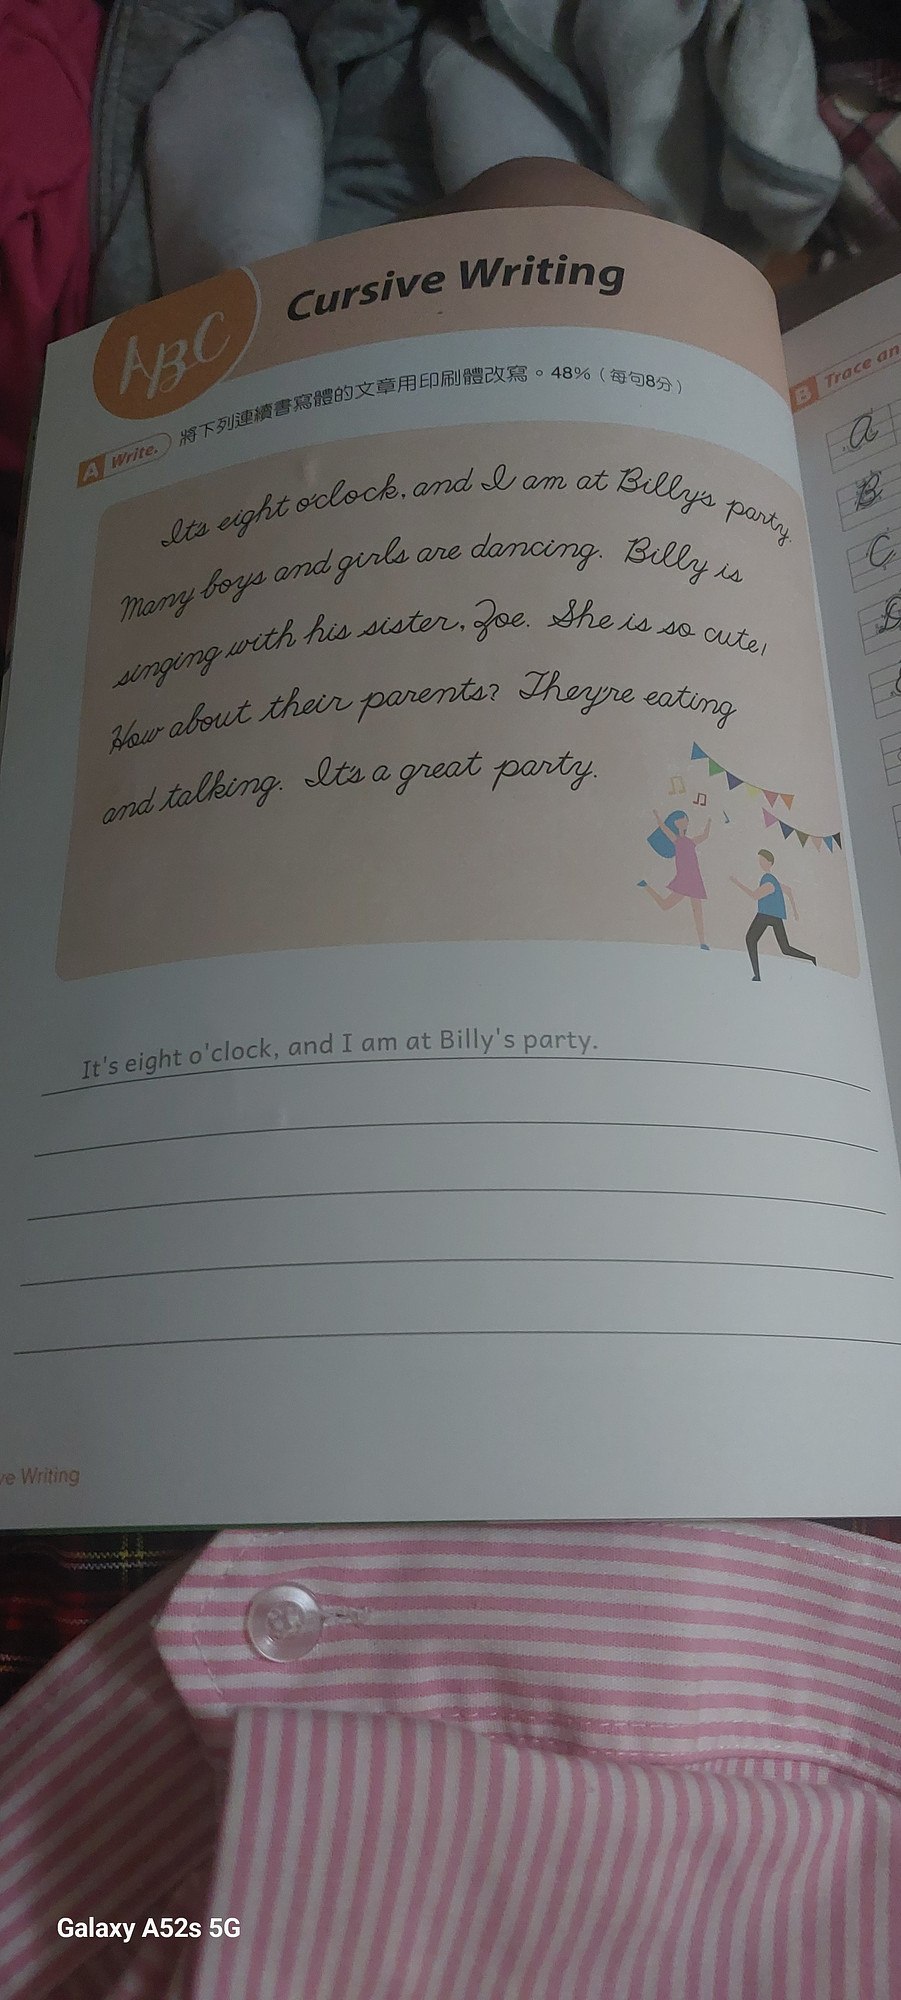 ABC
Cursive Writing
A Write. 將下列連續書寫體的文章用印刷體改寫。48%（每句8分）
It's eight o'clock, and I am at Billy's party.
Many boys and girls are dancing. Billy is
singing with his sister, Zoe. She is so cute!
How about their parents? They're eating
and talking. It's a great party.
It's eight o'clock, and I am at Billy's party.
ve Writing
B Trace an
a
B
C
Galaxy A52s 5G